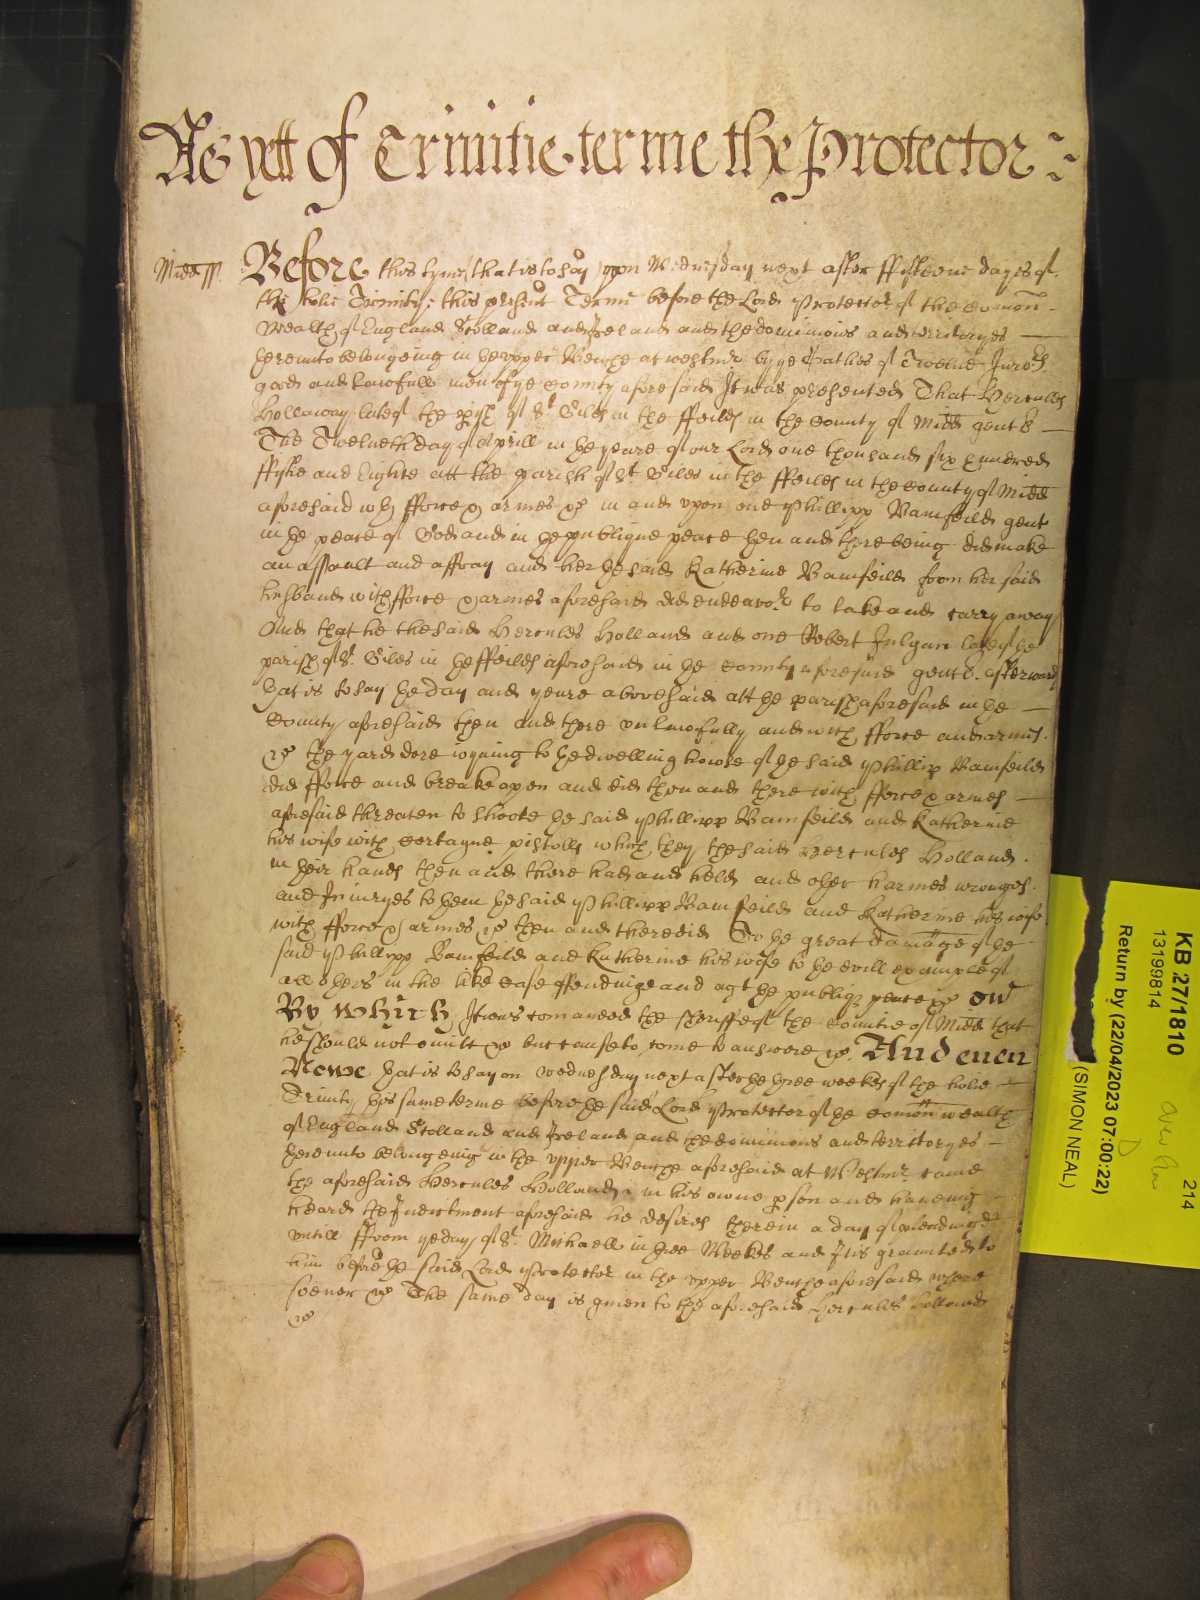 As yett of Trinitie terme the Protector
Midd ss.
Before this tyme that is to say upon Wednesday next after ffifteene dayes of
the holie Trinity this present Terme before the Lord Protector of the Comon
Wealth of England Scotland and Ireland and the dominions and territoryes
thereunto belongeing in the upper Benche at Westmr by ye Oathes of Twelve Juro:rs
good and lawfull men of ye County aforesaid It was presented That Hercules
Hollaway late of the pish of St Giles in the ffeilds in the County of Midd gent
The Twelueth day of Aprill in the yeare of our Lord one thousand six hundred
ffiftie and Eighte att the parish of St Giles in the ffeilds in the County of Midd
aforesaid wth fforce & armes &c in and upon one Phillipp Bamfeild gent
in the peace of God and in the publique peace then and there being did make
an assault and affray and her the said Katherine Bamfeild from her said
husband with fforce & armes aforesaid did endeavor to take and carry away
And that he the said Hercules Holland and one Robert late of the
parish of St. Giles in the ffeilds aforesaid in the County aforesaid gent afterward
that is to say the day and yeare abovesaid att the parish aforesaid in the
County aforesaid then and there unlawfully and with fforce and armes
&c the yard dore ioyning to the dwelling howse of the said Phillipp Bamfeild
did fforce and breake open and did then and there with fforce & armes
aforesaid threaten to shoote the said Phillipp Bamfeild and Katherine
his wife with certayne pistolls which they the said Hercules Holland
in their hands then and there had and held and other harmes wronges
and Iniuryes to them the said Phillipp Bamfeild and Katherine his wife
with fforce & armes &c then and there did To the great damage of the
said Phillipp Bamfeild and Katherine his wife to the evill example of
all others in the like case offendinge and agt the publiq peace &c
By which It was comanded the sheriffe of the Countie of Midd that
he should not omitt &c but cause to come to answere &c. And euen
Nowe that is to say on Wednesday next after the three weekes of the holie
Trinity this same terme before the said Lord Protector of the Comon wealth
of England Scotland and Ireland and the dominions and territoryes
thereunto belongeing in the upper Benche aforesaid at Westmr. came
the aforesaid Hercules Holland in his owne pson and haueing
heard the Indictment aforesaid he desires therein a day of pleading
untill ffrom ye day of St. Michaell in three Weekes and It is graunted to
him before the said Lord Protector in the upper Benche aforesaid where
soever &c The same day is given to the aforesaid Hercules Holland
&c
KB 27/1810
13199814
214
Return by (22/04/2023 07:00:22)
(SIMON NEAL)
D